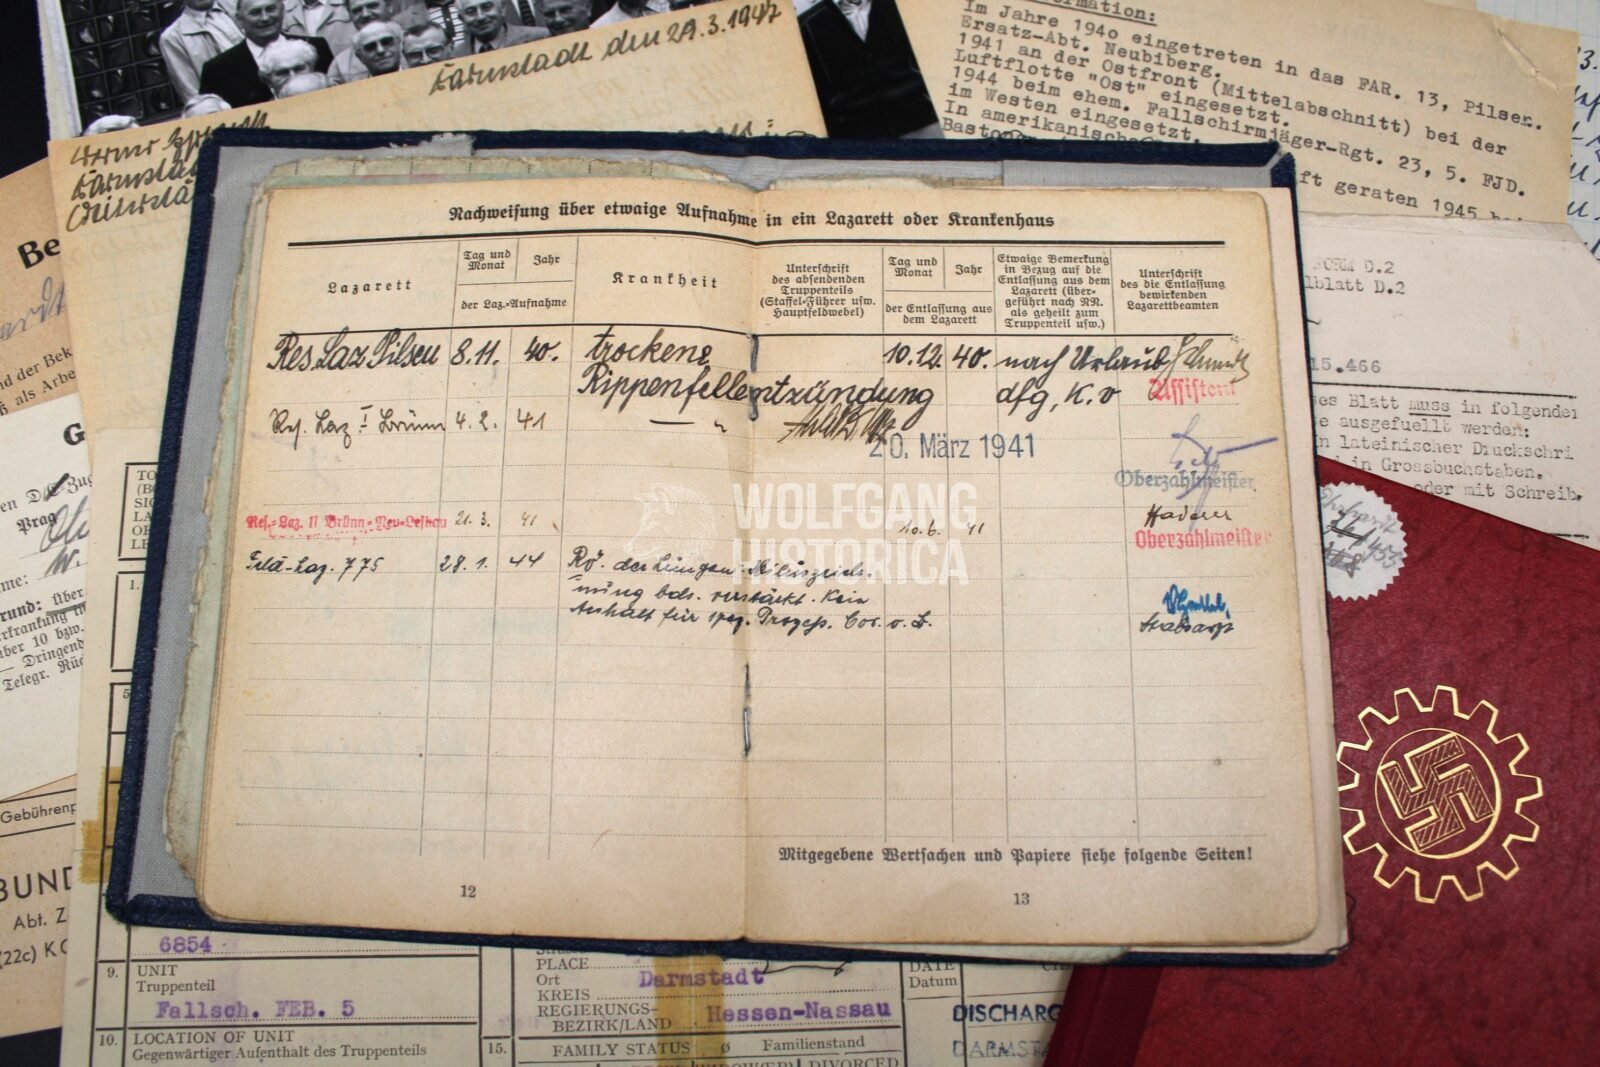 Darmstadt den 29.3.1947
Werner
Darmstadt
ormation:
Im Jahre 1940 eingetreten in das FAR. 13, Pilsen.
Ersatz-Abt. Neubiberg.
1941 an der Ostfront (Mittelabschnitt) bei der
Luftflotte "Ost" eingesetzt.
1944 beim ehem. Fallschirmjäger-Rgt. 23, 5. FJD.
im Westen eingesetzt.
In amerikanische
ft geraten 1945 bei
Baston
Be
nd der Bek
ß als Arbe
G
Prag
me:
rund: Über
erkrankung
ber 10 bzw.
— Dringend
Telegr. Rüc
Gebührenp
BUND
Abt. Z
(22c) K
Nachweisung über etwaige Aufnahme in ein Lazarett oder Krankenhaus
Lazarett
Tag und Monat
Jahr
der Laz.-Aufnahme
Krankheit
Unterschrift
des absendenden
Truppenteils
(Staffel-Führer usw.
Hauptfeldwebel)
Tag und Monat
Jahr
der Entlassung aus
dem Lazarett
Etwaige Bemerkung
in Bezug auf die
Entlassung aus dem
Lazarett (über-
geführt nach NN.
als geheilt zum
Truppenteil usw.)
Unterschrift
des die Entlassung
bewirkenden
Lazarettbeamten
Res. Laz Pilsen 8.11. 40. trockene 10.12. 40. nach Urlaub Schmidt
Rippenfellentzündung dfg, K.v Assistent
Res. Laz. I Brünn 4. 2. 41 — "
20. März 1941
Oberzahlmeister
Res.-Laz. II Brünn-Neu-Leskau 21. 3. 41 10. 6. 41 Haderer
Oberzahlmeister
Feld-Laz. 775 28. 1. 44 Rö. der Lungen: Hiluszeich-
nung bds. verstärkt. Kein
Anhalt für spez. Prozess. Cor. o. B.
Stabsarzt
WOLFGANG
HISTORICA
Mitgegebene Wertsachen und Papiere siehe folgende Seiten!
12
13
FORM D.2
lblatt D.2
15.466
ses Blatt muss in folgender
e ausgefuellt werden:
n lateinischer Druckschri
in Grossbuchstaben.
oder mit Schreib.
1.
5
6854
9. UNIT
Truppenteil
Fallsch. FEB. 5
10. LOCATION OF UNIT
Gegenwärtiger Aufenthalt des Truppenteils
PLACE
Ort Darmstadt
KREIS
REGIERUNGS-
BEZIRK/LAND Hessen-Nassau
15. FAMILY STATUS Ø Familienstand
DIVORCED
DATE
Datum
DISCHARG
DARMSTA